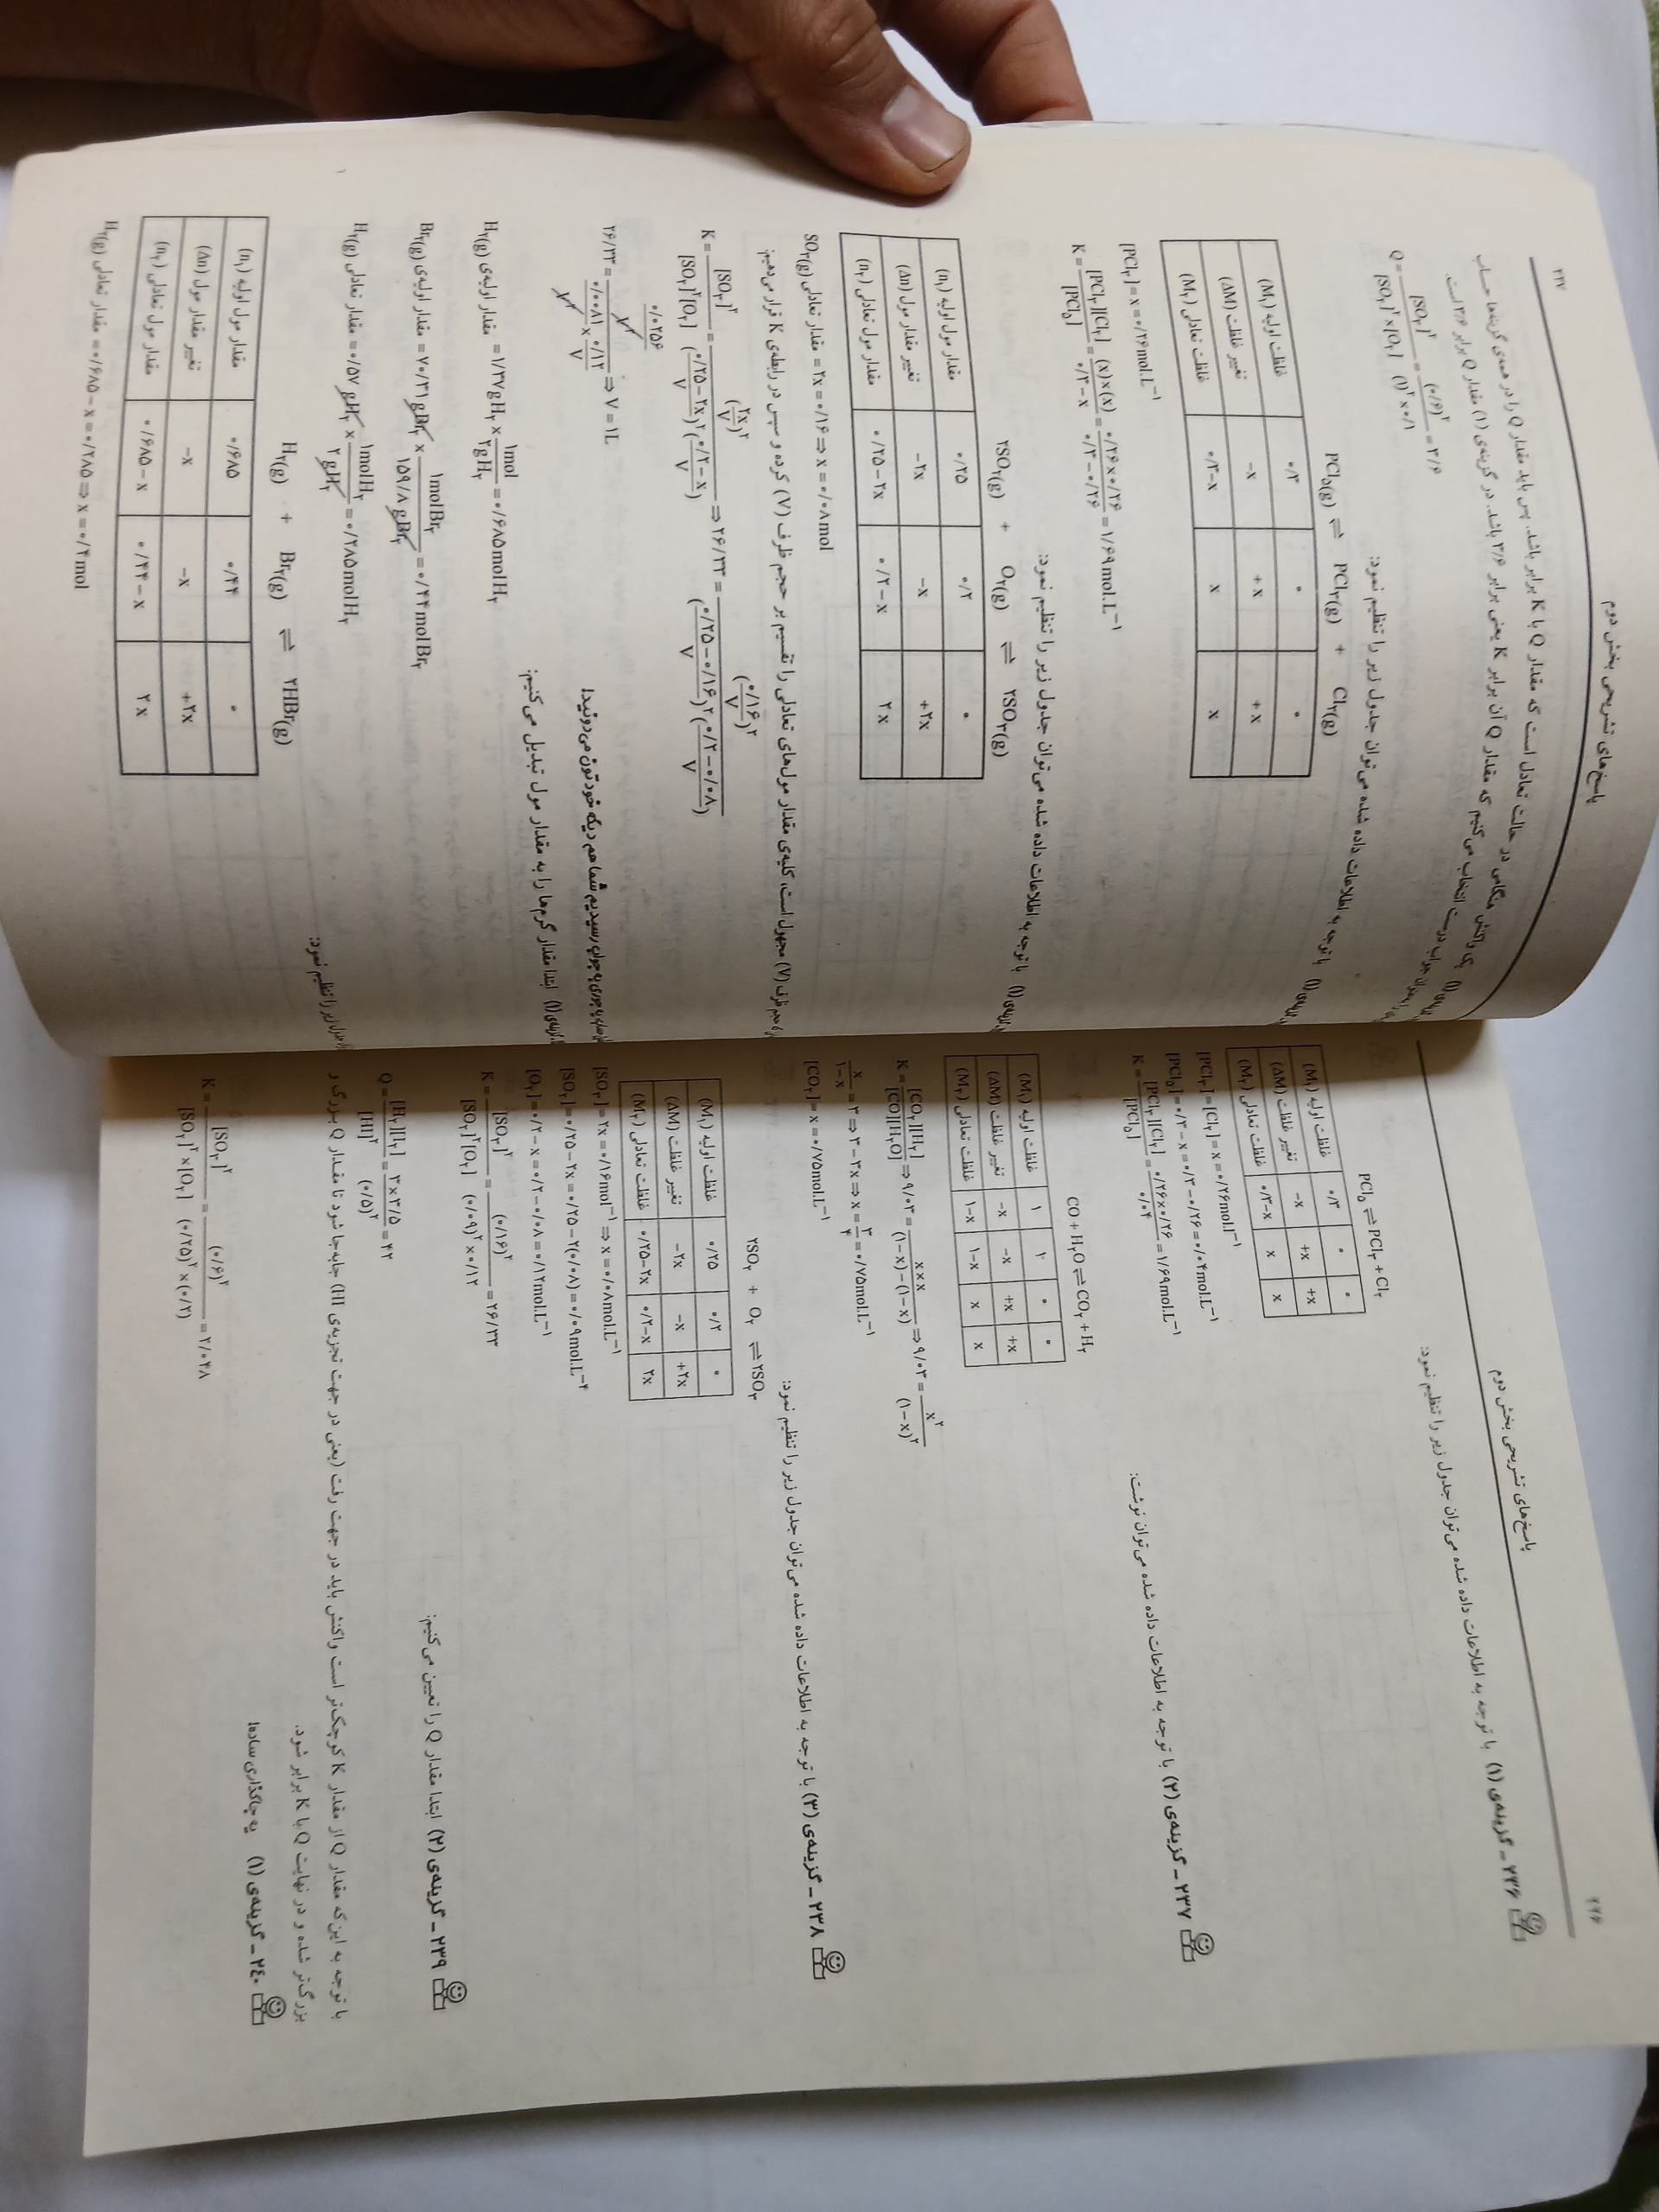 ۲۲۶
پاسخ‌های تشریحی بخش دوم
۲۳۶ - گزینه‌ی (۱) با توجه به اطلاعات داده شده می‌توان جدول زیر را تنظیم نمود:
PCl۵ ⇌ PCl۳ + Cl۲
غلظت اولیه (M۱) ۰/۳ ۰ ۰
تغییر غلظت (ΔM) −x +x +x
غلظت تعادلی (M۲) ۰/۳−x x x
[PCl۳] = [Cl۲] = x = ۰/۲۶mol.L⁻¹
[PCl۵] = ۰/۳ − x = ۰/۳ − ۰/۲۶ = ۰/۰۴mol.L⁻¹
K = [PCl۳][Cl۲] / [PCl۵] = ۰/۲۶×۰/۲۶ / ۰/۰۴ = ۱/۶۹mol.L⁻¹
۲۳۷ - گزینه‌ی (۲) با توجه به اطلاعات داده شده می‌توان نوشت:
CO + H۲O ⇌ CO۲ + H۲
غلظت اولیه (M۱) ۱ ۱ ۰ ۰
تغییر غلظت (ΔM) −x −x +x +x
غلظت تعادلی (M۲) ۱−x ۱−x x x
K = [CO۲][H۲] / [CO][H۲O] ⇒ ۹/۰۳ = x×x / (۱−x)−(۱−x) ⇒ ۹/۰۳ = x² / (۱−x)²
x / ۱−x = ۳ ⇒ ۳ − ۳x ⇒ x = ۳/۴ = ۰/۷۵mol.L⁻¹
[CO۲] = x = ۰/۷۵mol.L⁻¹
۲۳۸ - گزینه‌ی (۳) با توجه به اطلاعات داده شده می‌توان جدول زیر را تنظیم نمود:
۲SO۲ + O۲ ⇌ ۲SO۳
غلظت اولیه (M۱) ۰/۲۵ ۰/۲ ۰
تغییر غلظت (ΔM) −۲x −x +۲x
غلظت تعادلی (M۲) ۰/۲۵−۲x ۰/۲−x ۲x
[SO۳] = ۲x = ۰/۱۶mol⁻¹ ⇒ x = ۰/۰۸mol.L⁻¹
[SO۲] = ۰/۲۵ − ۲x = ۰/۲۵ − ۲(۰/۰۸) = ۰/۰۹mol.L⁻⁴
[O۲] = ۰/۲ − x = ۰/۲ − ۰/۰۸ = ۰/۱۲mol.L⁻¹
K = [SO۳]² / [SO۲]²[O۲] = (۰/۱۶)² / (۰/۰۹)²×۰/۱۲ = ۲۶/۳۳
۲۳۹ - گزینه‌ی (۲) ابتدا مقدار Q را تعیین می‌کنیم:
Q = [H۲][I۲] / [HI]² = ۳×۳/۵ / (۰/۵)² = ۴۲
با توجه به این‌که مقدار Q از مقدار K کوچک‌تر است واکنش باید در جهت رفت (یعنی در جهت تجزیه‌ی HI) جابه‌جا شود تا مقدار Q بزرگ و
بزرگ‌تر شده و در نهایت Q با K برابر شود.
۲۴۰ - گزینه‌ی (۱) یه جاگذاری ساده!
K = [SO۳]² / [SO۲]²×[O۲] = (۰/۶)² / (۰/۲۵)²×(۰/۲) = ۲/۰۴۸
پاسخ‌های تشریحی بخش دوم
۲۲۷
(۱) یک واکنش هنگامی در حالت تعادل است که مقدار Q با K برابر باشد. پس باید مقدار Q را در همه‌ی گزینه‌ها حساب
جواب درست انتخاب می‌کنیم که مقدار Q آن برابر K یعنی برابر ۳/۶ باشد. در گزینه‌ی (۱) مقدار Q برابر ۳/۶ است.
Q = [SO۳]² / [SO۲]²×[O۲] = (۰/۶)² / (۱)²×۰/۱ = ۳/۶
(۱) با توجه به اطلاعات داده شده می‌توان جدول زیر را تنظیم نمود:
PCl۵(g) ⇌ PCl۳(g) + Cl۲(g)
غلظت اولیه (M۱) ۰/۳ ۰ ۰
تغییر غلظت (ΔM) −x +x +x
غلظت تعادلی (M۲) ۰/۳−x x x
[PCl۳] = x = ۰/۲۶mol.L⁻¹
K = [PCl۳][Cl۲] / [PCl۵] = (x)×(x) / ۰/۳−x = ۰/۲۶×۰/۲۶ / ۰/۳−۰/۲۶ = ۱/۶۹mol.L⁻¹
(۱) با توجه به اطلاعات داده شده می‌توان جدول زیر را تنظیم نمود:
۲SO۲(g) + O۲(g) ⇌ ۲SO۳(g)
مقدار مول اولیه (n۱) ۰/۲۵ ۰/۲ ۰
تغییر مقدار مول (Δn) −۲x −x +۲x
مقدار مول تعادلی (n۲) ۰/۲۵−۲x ۰/۲−x ۲x
مقدار تعادلی SO۳(g) = ۲x = ۰/۱۶ ⇒ x = ۰/۰۸mol
حجم ظرف (V) مجهول است، کلیه‌ی مقدار مول‌های تعادلی را تقسیم بر حجم ظرف (V) کرده و سپس در رابطه‌ی K قرار می‌دهیم:
K = [SO۳]² / [SO۲]²[O۲] = (۲x/V)² / (۰/۲۵−۲x/V)²(۰/۲−x/V) ⇒ ۲۶/۳۳ = (۰/۱۶/V)² / (۰/۲۵−۰/۱۶/V)²(۰/۲−۰/۰۸/V)
۲۶/۳۳ = ۰/۰۲۵۶/V² / ۰/۰۰۸۱/V² × ۰/۱۲/V ⇒ V = ۱L
به جواب رسیدیم شما هم دیگه خودتون می‌دونید!
(۱) ابتدا مقدار گرم‌ها را به مقدار مول تبدیل می‌کنیم:
مقدار اولیه‌ی H۲(g) = ۱/۳۷gH۲ × ۱mol / ۲gH۲ = ۰/۶۸۵molH۲
مقدار اولیه‌ی Br۲(g) = ۷۰/۳۱gBr۲ × ۱molBr۲ / ۱۵۹/۸gBr۲ = ۰/۴۴molBr۲
مقدار تعادلی H۲(g) = ۰/۵۷gH۲ × ۱molH۲ / ۲gH۲ = ۰/۲۸۵molH۲
زیر را تنظیم نمود:
H۲(g) + Br۲(g) ⇌ ۲HBr(g)
مقدار مول اولیه (n۱) ۰/۶۸۵ ۰/۴۴ ۰
تغییر مقدار مول (Δn) −x −x +۲x
مقدار مول تعادلی (n۲) ۰/۶۸۵−x ۰/۴۴−x ۲x
مقدار تعادلی H۲(g) = ۰/۶۸۵ − x = ۰/۲۸۵ ⇒ x = ۰/۴mol